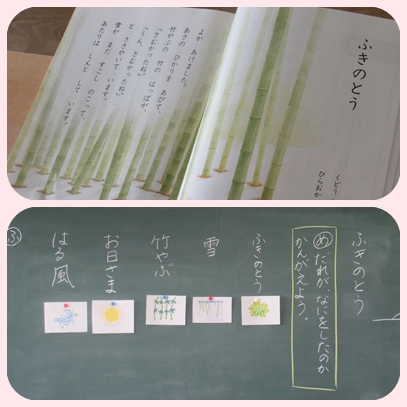 ふきのとう
くどう
ひらおか
よが あけました。
あさの ひかりを あびて、
竹やぶの 竹の はっぱが、
「さむかったね。」
「うん、さむかったね。」
と ささやいて います。
雪が まだ すこし のこって、
あたりは しんと して います。
ふきのとう
め だれが、なにをしたのか
かんがえよう。
ふきのとう
雪
竹やぶ
お日さま
はる風
ふ